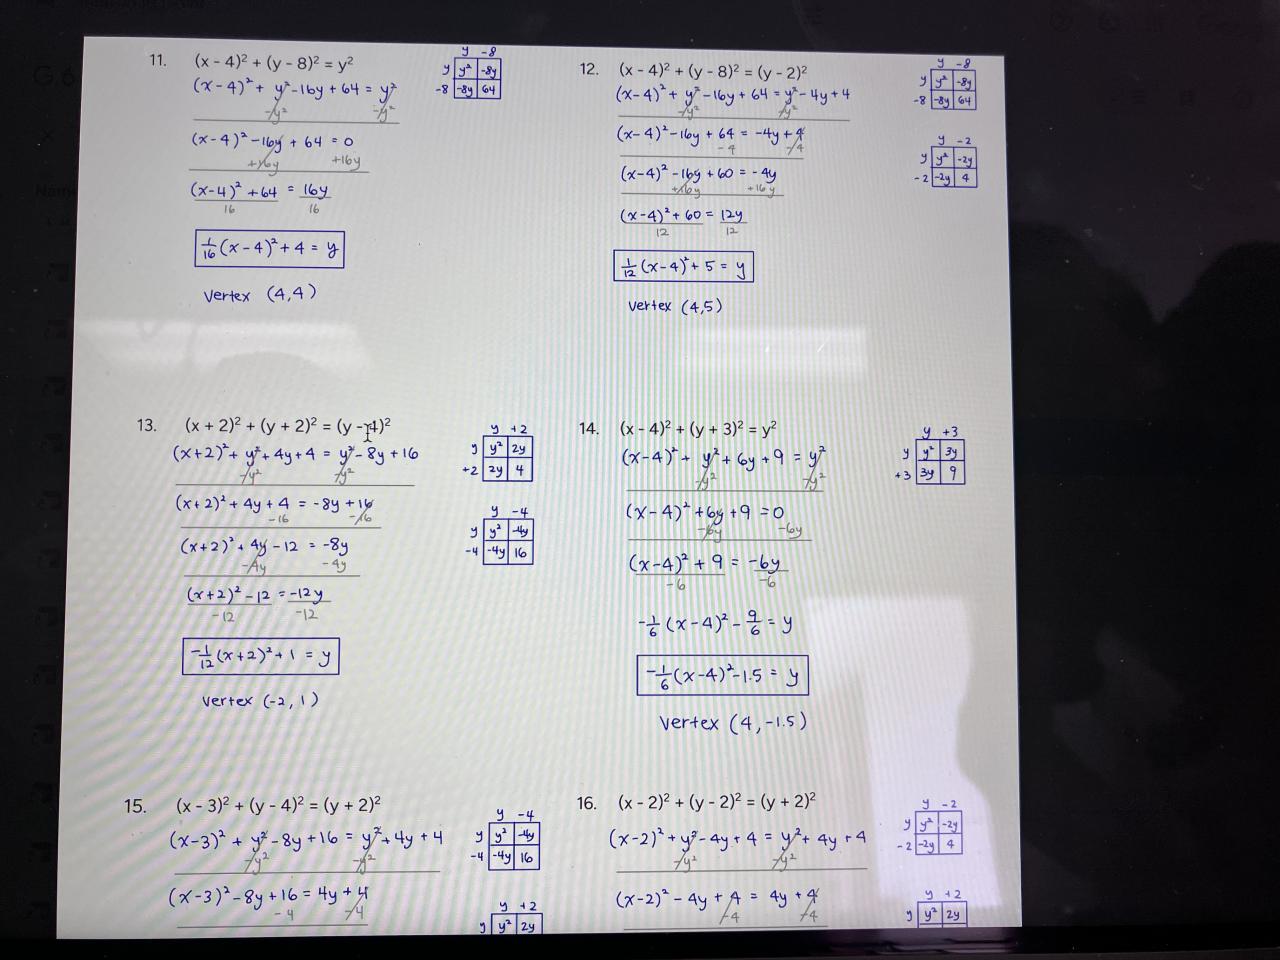 11. (x - 4)² + (y - 8)² = y²
(x-4)² + y² - 16y + 64 = y²
-y² -y²
(x-4)² - 16y + 64 = 0
+16y +16y
(x-4)² + 64 = 16y
16 16
1/16 (x-4)² + 4 = y
Vertex (4,4)
y -8
y y² -8y
-8 -8y 64
12. (x - 4)² + (y - 8)² = (y - 2)²
(x-4)² + y² - 16y + 64 = y² - 4y + 4
-y² -y²
(x-4)² - 16y + 64 = -4y + 4
-4 -4
(x-4)² - 16y + 60 = -4y
+16y +16y
(x-4)² + 60 = 12y
12 12
1/12 (x-4)² + 5 = y
Vertex (4,5)
y -8
y y² -8y
-8 -8y 64
y -2
y y² -2y
-2 -2y 4
13. (x + 2)² + (y + 2)² = (y - 4)²
(x+2)² + y² + 4y + 4 = y² - 8y + 16
-y² -y²
(x+2)² + 4y + 4 = -8y + 16
-16 -16
(x+2)² + 4y - 12 = -8y
-4y -4y
(x+2)² - 12 = -12y
-12 -12
-1/12 (x+2)² + 1 = y
Vertex (-2, 1)
y +2
y y² 2y
+2 2y 4
y -4
y y² -4y
-4 -4y 16
14. (x - 4)² + (y + 3)² = y²
(x-4)² + y² + 6y + 9 = y²
-y² -y²
(x-4)² + 6y + 9 = 0
-6y -6y
(x-4)² + 9 = -6y
-6 -6
-1/6 (x-4)² - 9/6 = y
-1/6 (x-4)² - 1.5 = y
Vertex (4, -1.5)
y +3
y y² 3y
+3 3y 9
15. (x - 3)² + (y - 4)² = (y + 2)²
(x-3)² + y² - 8y + 16 = y² + 4y + 4
-y² -y²
(x-3)² - 8y + 16 = 4y + 4
-4 -4
y -4
y y² -4y
-4 -4y 16
y +2
y y² 2y
16. (x - 2)² + (y - 2)² = (y + 2)²
(x-2)² + y² - 4y + 4 = y² + 4y + 4
-y² -y²
(x-2)² - 4y + 4 = 4y + 4
-4 -4
y -2
y y² -2y
-2 -2y 4
y +2
y y² 2y